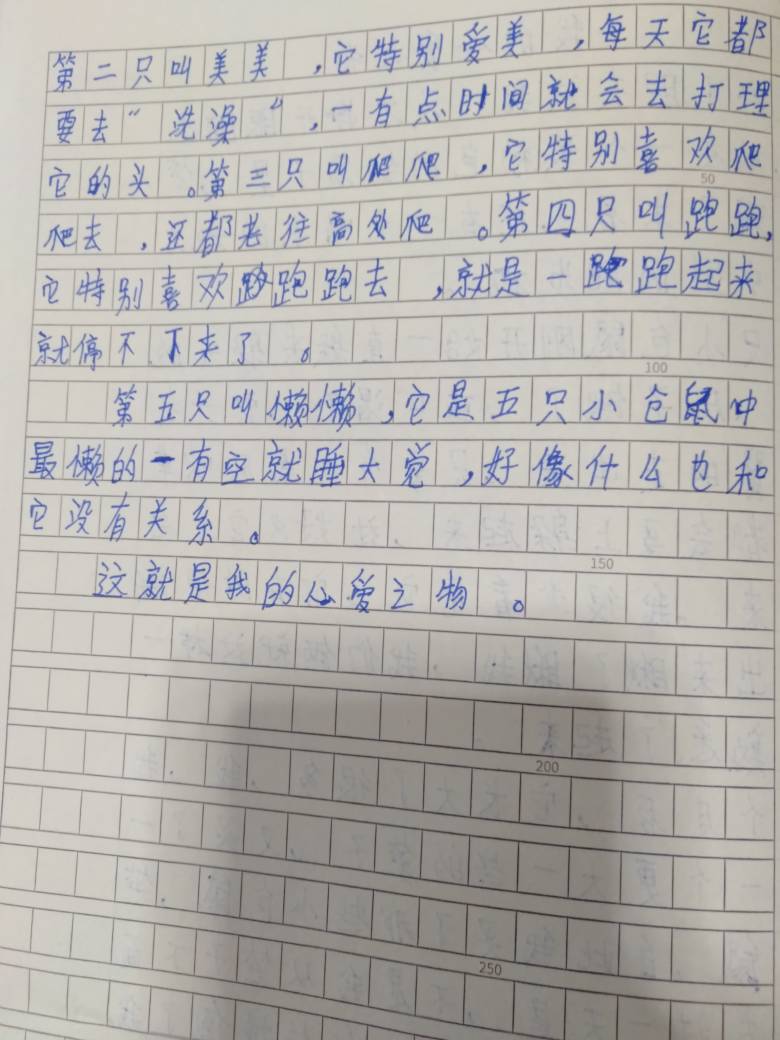 第二只叫美美,它特别爱美,每天它都
要去“洗澡”,一有点时间就会去打理
它的头。第三只叫爬爬,它特别喜欢爬
50
爬去,还都老往高处爬。第四只叫跑跑,
它特别喜欢跑跑跑去,就是一跑跑起来
就停不下来了。
100
第五只叫懒懒,它是五只小仓鼠中
最懒的一有空就睡大觉,好像什么也和
它没有关系。
150
这就是我的心爱之物。
200
250